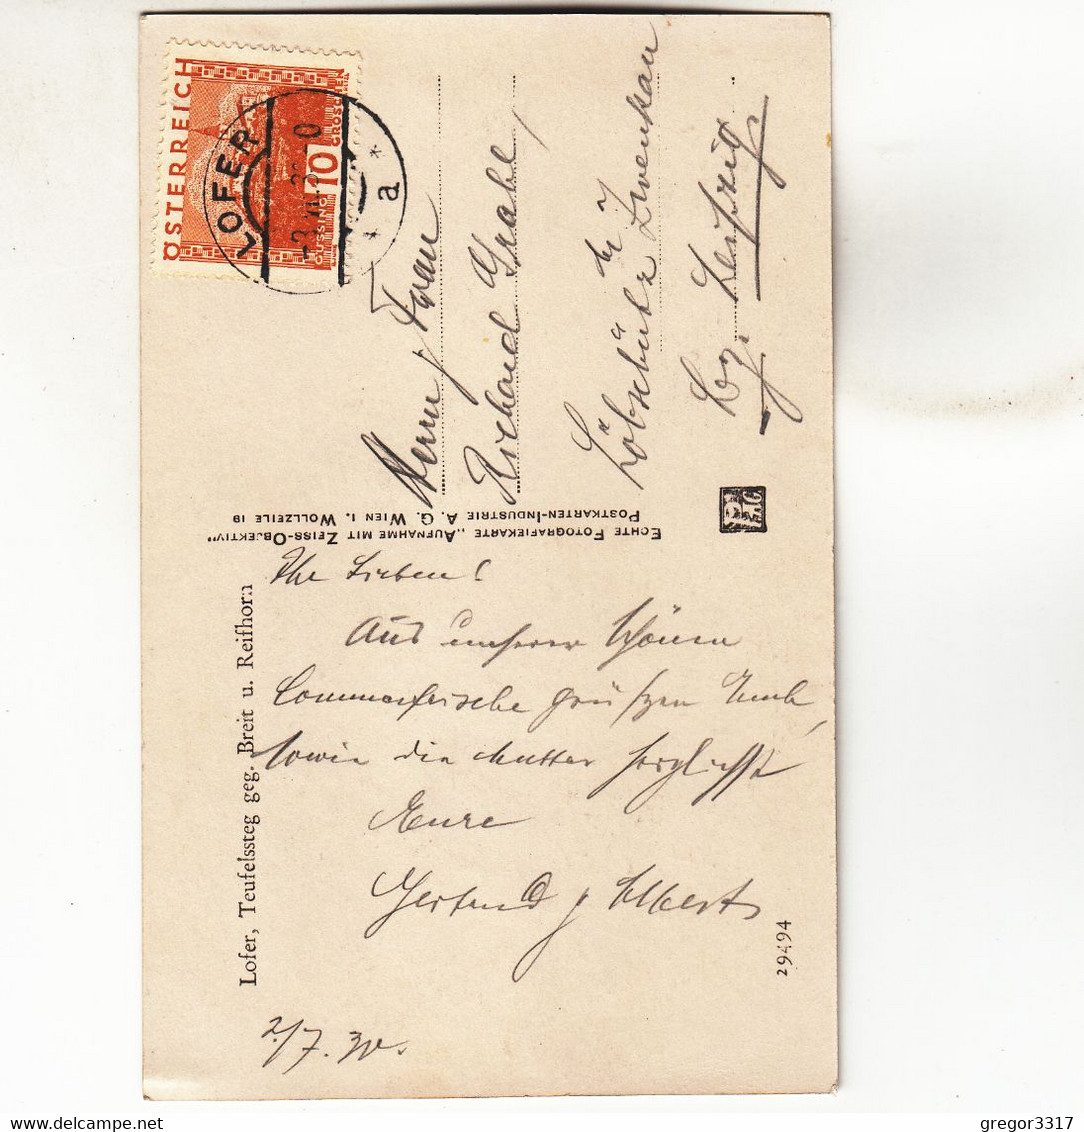 ÖSTERREICH
10
GROSCHEN
GÜSSING
LOFER
a
Herrn u. Frau
Richard Grahl,
Löbschütz b/
Zwenkau
Bz. Leipzig
ECHTE FOTOGRAFIEKARTE „AUFNAHME MIT ZEISS-OBJEKTIV"
POSTKARTEN-INDUSTRIE A. G. WIEN I. WOLLZEILE 19
Lofer, Teufelssteg geg. Breit u. Reifhorn
Ihr Lieben!
Aus unserer schönen
Sommerfrische grüßen Euch,
sowie die Mutter herzlichst
Eure
Gertrud u. Albert
2/7.30.
29494